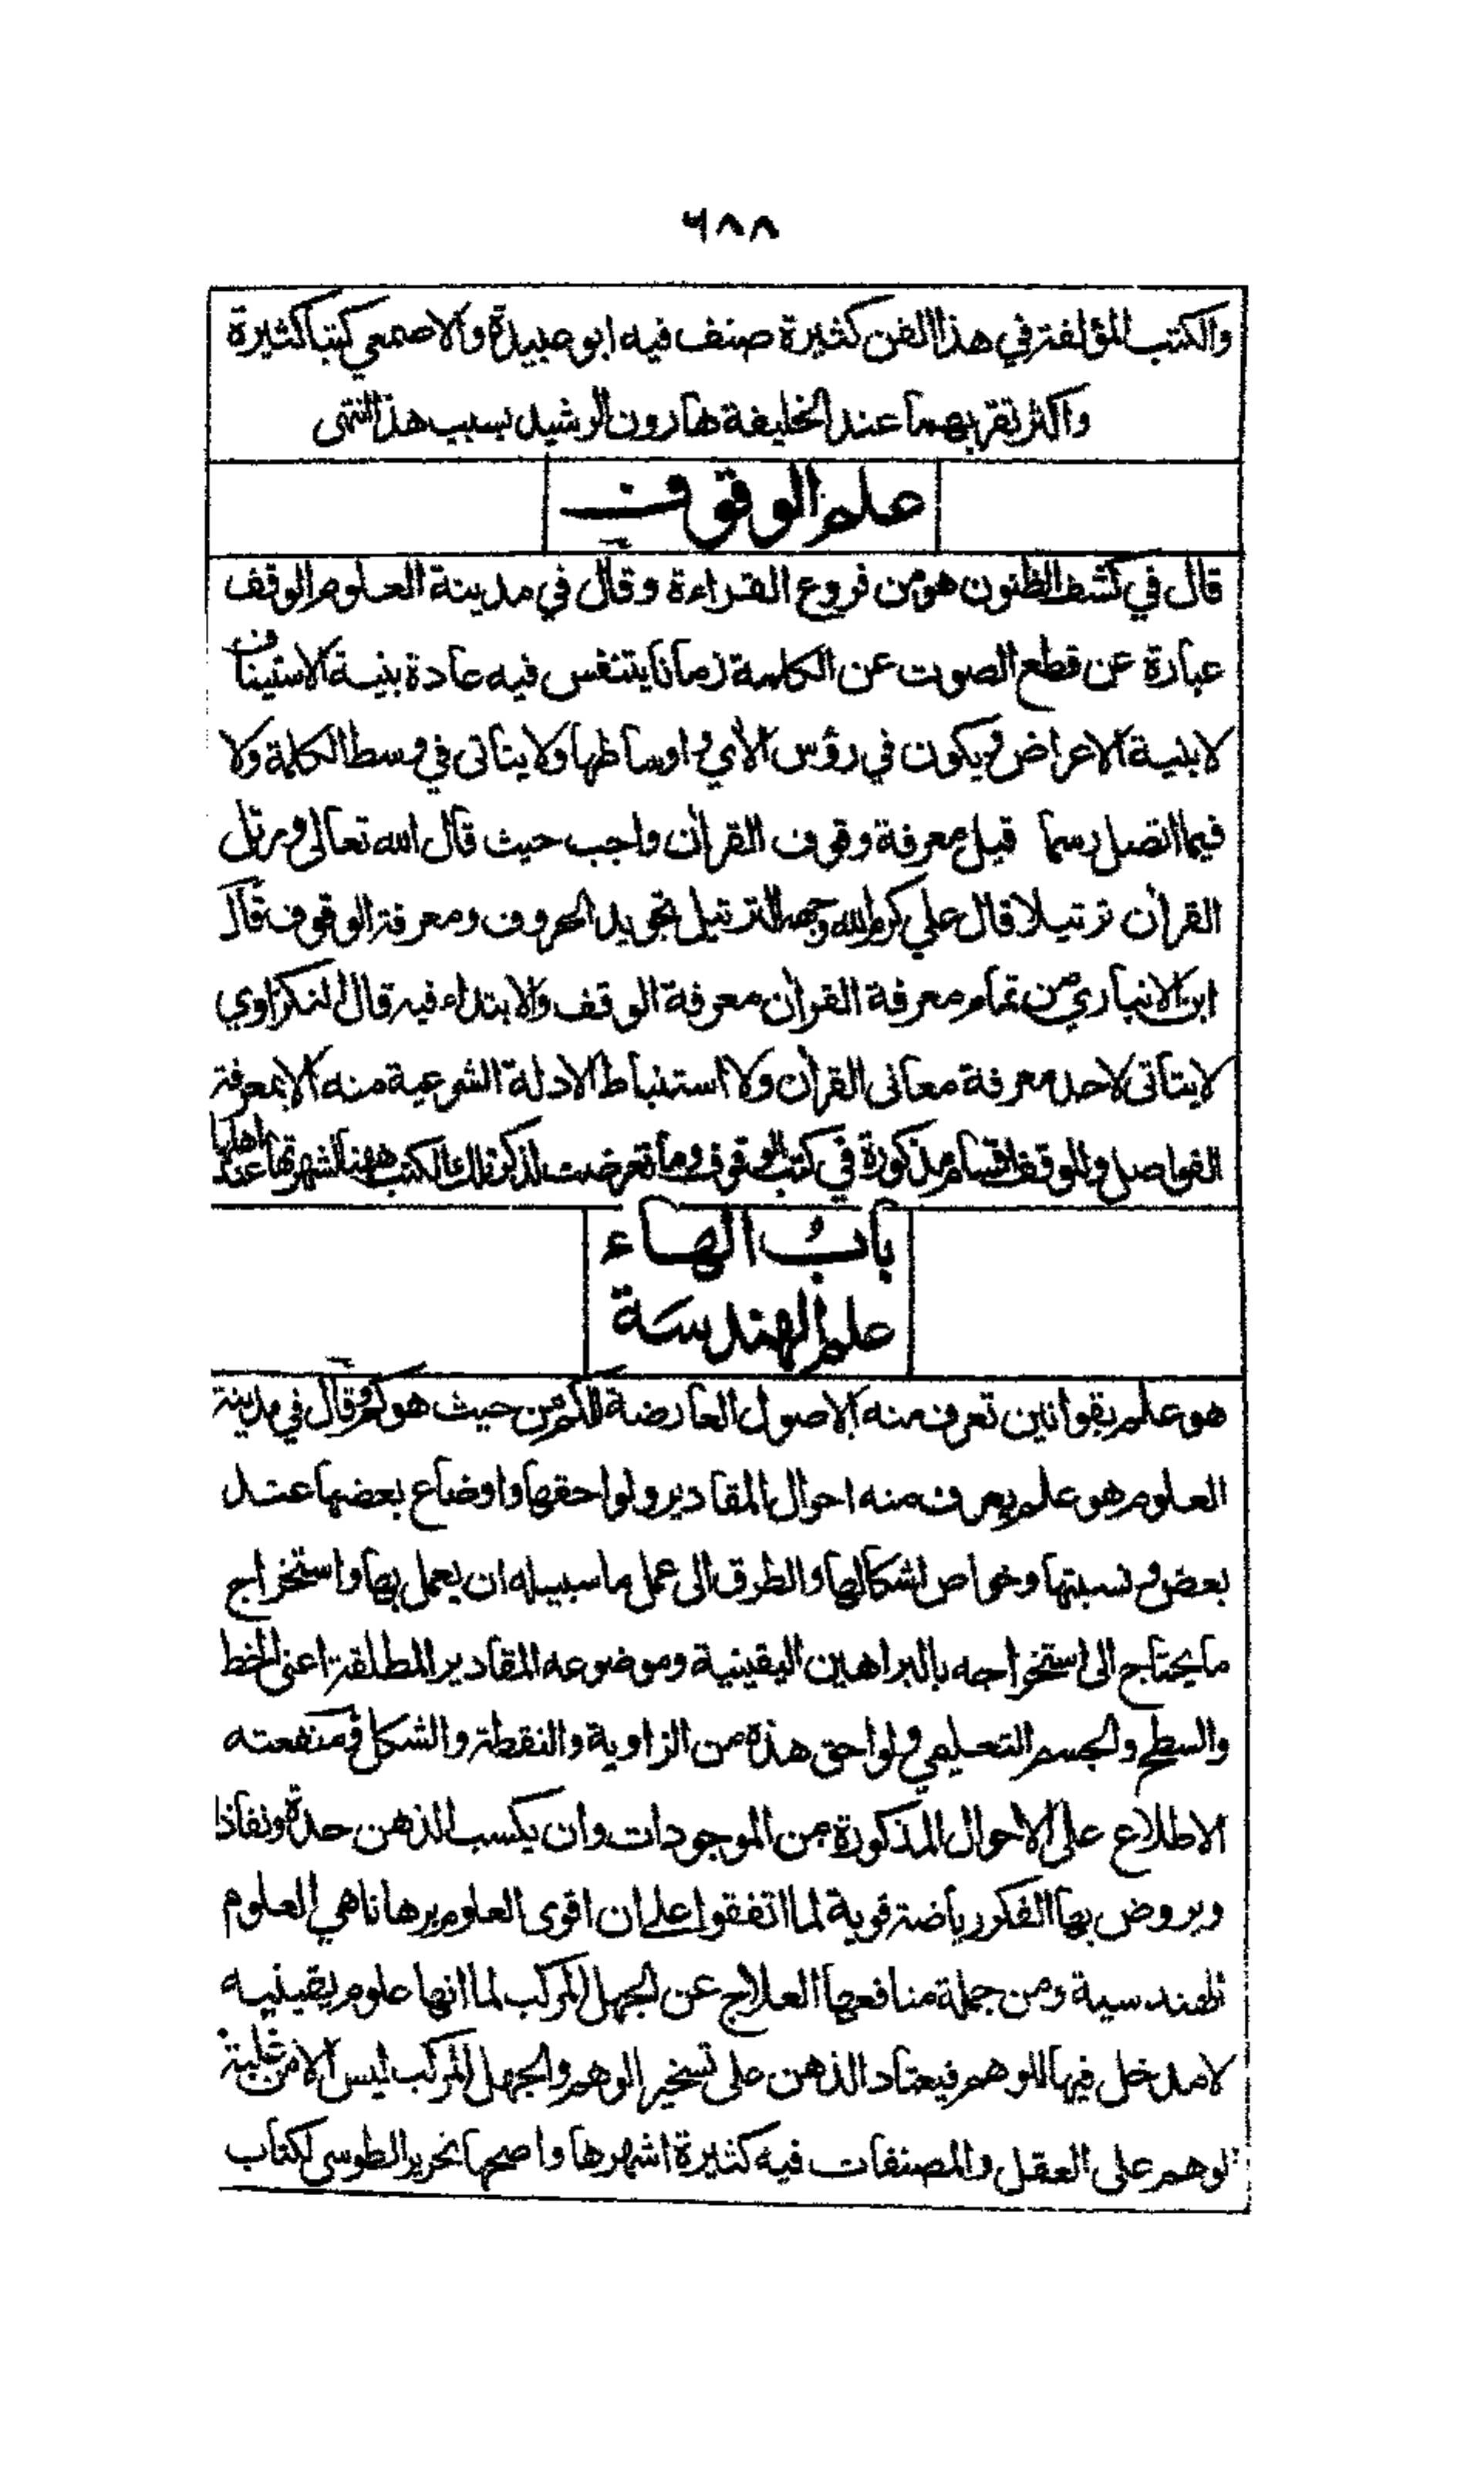 ٦٨٨
والكتب المؤلفة في هذا الفن كثيرة صنف فيه ابو عبيدة والاصمعي كتبا كثيرة
واكثر تقربهما عند الخليفة هارون الرشيد بسبب هذا انتهى
علم الوقوف
قال في كشف الظنون هو من فروع القراءة وقال في مدينة العلوم الوقف
عبارة عن قطع الصوت عن الكلمة زمانا يتنفس فيه عادة بنية الاستيناف
لا بنية الاعراض ويكون في رؤس الاي واوساطها ولا يتاتى في وسط الكلمة ولا
فيما اتصل رسما قيل معرفة وقوف القرآن واجب حيث قال الله تعالى ورتل
القرآن ترتيلا قال علي كرم الله وجهه الترتيل تجويد الحروف ومعرفة الوقوف قال
ابن الانباري من تمام معرفة القرآن معرفة الوقف والابتداء فيه قال النكزاوي
لا يتأتى لاحد معرفة معاني القرآن ولا استنباط الادلة الشرعية منه الا بمعرفة
الفواصل وللوقف اقسام مذكورة في كتب الوقوف وما تعرضت لذكر تلك الكتب ههنا لشهرتها عند اهلها
باب الهاء
علم الهندسة
هو علم بقوانين تعرف منه الاصول العارضة للكم من حيث هو كم وقال في مدينة
العلوم هو علم يعرف منه احوال المقادير ولواحقها واوضاع بعضها عند
بعض ونسبتها وخواص اشكالها والطرق الى عمل ما سبيله ان يعمل بها واستخراج
ما يحتاج الى استخراجه بالبراهين اليقينية وموضوعه المقادير المطلقة اعني الخط
والسطح والجسم التعليمي ولواحق هذه من الزاوية والنقطة والشكل ومنفعته
الاطلاع على الاحوال المذكورة من الموجودات وان يكسب الذهن حدة ونفاذا
ويروض بها الفكر رياضة قوية لما اتفقوا على ان اقوى العلوم برهانا هي العلوم
الهندسية ومن جملة منافعها العلاج عن الجهل المركب لما انها علوم يقينيه
لا مدخل فيها للوهم فيعتاد الذهن على تسخير الوهم والجهل المركب ليس الا من غلبة
الوهم على العقل والمصنفات فيه كثيرة اشهرها واصحها تحرير الطوسي لكتاب